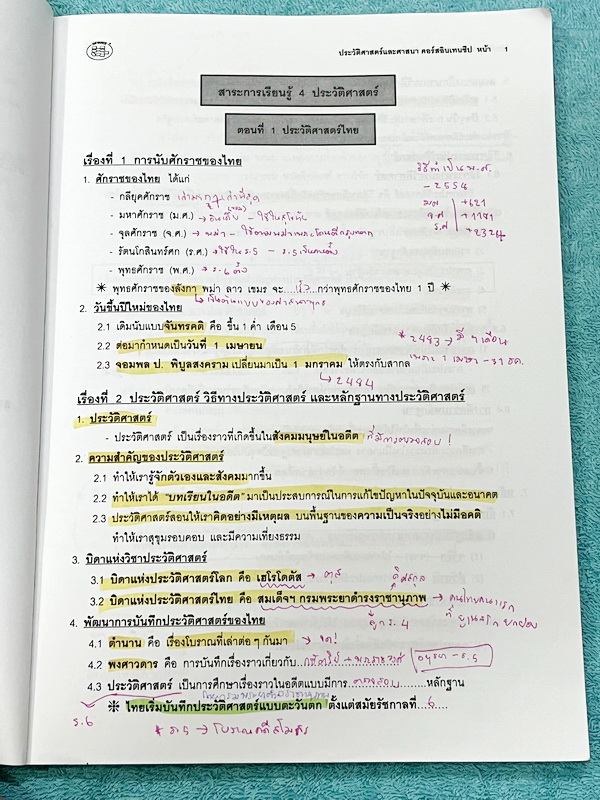 ประวัติศาสตร์และศาสนา คอร์สอินเทนซีป หน้า 1
สาระการเรียนรู้ 4 ประวัติศาสตร์
ตอนที่ 1 ประวัติศาสตร์ไทย
เรื่องที่ 1 การนับศักราชของไทย
1. ศักราชของไทย ได้แก่
- กลียุคศักราช เก่าที่สุด
- มหาศักราช (ม.ศ.) → อินเดีย - ใช้ในสุโขทัย
- จุลศักราช (จ.ศ.) → พม่า -
- รัตนโกสินทร์ศก (ร.ศ.) → ใช้ใน ร.5 - ร.5 เป็นคนตั้ง
- พุทธศักราช (พ.ศ.) → ร.6 ตั้ง
- 2554
ม.ศ +621
จ.ศ +1181
ร.ศ +2324
✳ พุทธศักราชของลังกา พม่า ลาว เขมร จะ...เร็ว...กว่าพุทธศักราชของไทย 1 ปี ✳
2. วันขึ้นปีใหม่ของไทย
2.1 เดิมนับแบบจันทรคติ คือ ขึ้น 1 ค่ำ เดือน 5
2.2 ต่อมากำหนดเป็นวันที่ 1 เมษายน
* 2483 → มี 9 เดือน
2.3 จอมพล ป. พิบูลสงคราม เปลี่ยนมาเป็น 1 มกราคม ให้ตรงกับสากล
เพราะ 1 เมษา - 31 ธค.
↳ 2484
เรื่องที่ 2 ประวัติศาสตร์ วิธีทางประวัติศาสตร์ และหลักฐานทางประวัติศาสตร์
1. ประวัติศาสตร์
- ประวัติศาสตร์ เป็นเรื่องราวที่เกิดขึ้นในสังคมมนุษย์ในอดีต ที่มีการตรวจสอบ !
2. ความสำคัญของประวัติศาสตร์
2.1 ทำให้เรารู้จักตัวเองและสังคมมากขึ้น
2.2 ทำให้เราได้ "บทเรียนในอดีต" มาเป็นประสบการณ์ในการแก้ไขปัญหาในปัจจุบันและอนาคต
2.3 ประวัติศาสตร์สอนให้เราคิดอย่างมีเหตุผล บนพื้นฐานของความเป็นจริงอย่างไม่มีอคติ
ทำให้เราสุขุมรอบคอบ และมีความเที่ยงธรรม
3. บิดาแห่งวิชาประวัติศาสตร์
3.1 บิดาแห่งประวัติศาสตร์โลก คือ เฮโรโดตัส →
ดิศกุล
3.2 บิดาแห่งประวัติศาสตร์ไทย คือ สมเด็จฯ กรมพระยาดำรงราชานุภาพ → คนไทยคนแรก
ที่ ยูเนสโก ยกย่อง
ลูก ร.4
4. พัฒนาการบันทึกประวัติศาสตร์ของไทย
4.1 ตำนาน คือ เรื่องโบราณที่เล่าต่อ ๆ กันมา →
4.2 พงศาวดาร คือ การบันทึกเรื่องราวเกี่ยวกับ..กษัตริย์ + อยุธยา - ร.5
4.3 ประวัติศาสตร์ เป็นการศึกษาเรื่องราวในอดีตแบบมีการ...ตรวจสอบ...หลักฐาน
ร.6
✳ ไทยเริ่มบันทึกประวัติศาสตร์แบบตะวันตก ตั้งแต่สมัยรัชกาลที่...6...
* ร.5 → โบราณคดีสโมสร